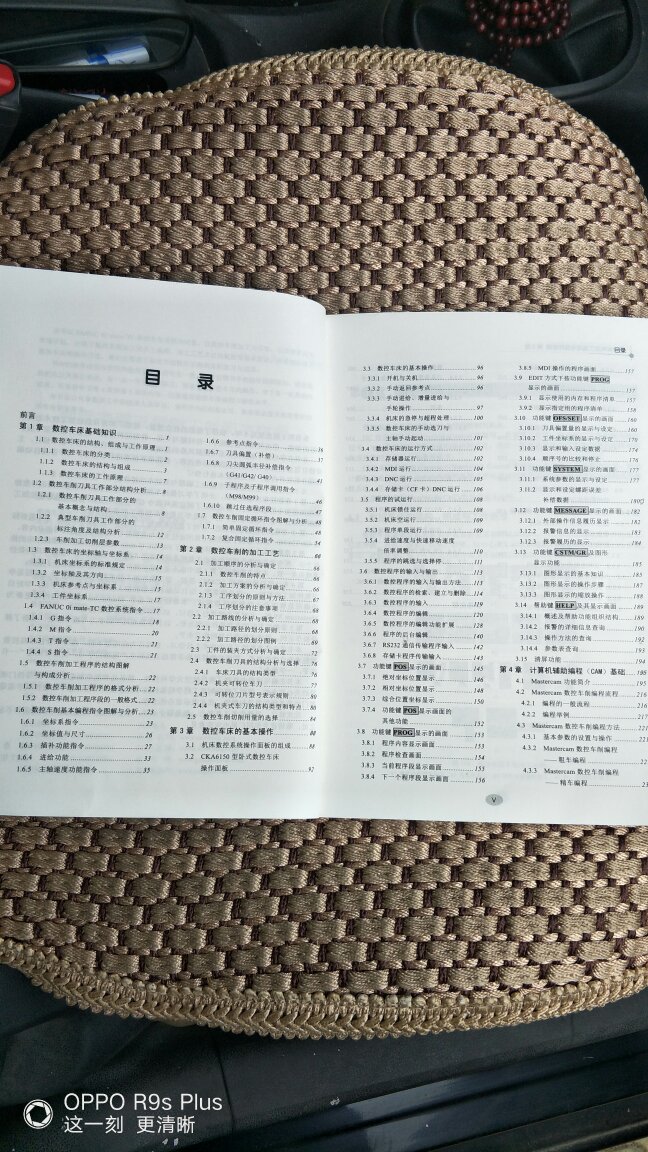 目 录
前言
第 1 章 数控车床基础知识 1
1.1 数控车床的结构、组成与工作原理 1
1.1.1 数控车床的分类 1
1.1.2 数控车床的结构与组成 3
1.1.3 数控车床的工作原理 7
1.2 数控车削刀具工作部分结构分析 8
1.2.1 数控车削刀具工作部分的
基本概念与结构 8
1.2.2 典型车削刀具工作部分的
标注角度及结构分析 12
1.2.3 车削加工切削层参数 13
1.3 数控车床的坐标轴与坐标系 14
1.3.1 机床坐标系的标准规定 14
1.3.2 坐标轴及其方向 15
1.3.3 机床参考点与坐标系 15
1.3.4 工件坐标系 17
1.4 FANUC 0i mate-TC 数控系统指令 17
1.4.1 G 指令 18
1.4.2 M 指令 20
1.4.3 T 指令 21
1.4.4 S 指令 21
1.5 数控车削加工程序的结构图解
与构成分析 22
1.5.1 数控车削加工程序的格式分析 22
1.5.2 数控车削加工程序段的一般格式 22
1.6 数控车削基本编程指令图解与分析 23
1.6.1 坐标系指令 23
1.6.2 坐标值与尺寸 26
1.6.3 插补功能指令 27
1.6.4 进给功能 33
1.6.5 主轴速度功能指令 35
1.6.6 参考点指令 36
1.6.7 刀具偏置（补偿） 37
1.6.8 刀尖圆弧半径补偿指令
（G41/G42/ G40） 41
1.6.9 子程序及子程序调用指令
（M98/M99） 46
1.6.10 跳过任选程序段 47
1.7 数控车削固定循环指令图解与分析 48
1.7.1 简单固定循环指令 48
1.7.2 复合固定循环指令 54
第 2 章 数控车削的加工工艺 61
2.1 加工顺序的分析与确定 61
2.1.1 数控车削的特点
2.1.2 加工方案的分析与确定
2.1.3 工序划分的原则与方法
2.1.4 工序划分的注意事项
2.2 加工路线的分析与确定
2.2.1 加工路径的划分原则 68
2.2.2 加工路径的划分图例 69
2.3 工件的装夹方式分析与确定 72
2.4 数控车削刀具的结构分析与选择 76
2.4.1 车床刀具的结构类型 76
2.4.2 机夹可转位车刀 77
2.4.3 可转位刀片型号表示规则 80
2.4.4 机夹式车刀的结构类型和特点 86
2.5 数控车削切削用量的选择 84
第 3 章 数控车床的基本操作 88
3.1 机床数控系统操作面板的组成 88
3.2 CKA6150 型卧式数控车床
操作面板 91
目录
3.3 数控车床的基本操作 96
3.3.1 开机与关机 96
3.3.2 手动返回参考点 96
3.3.3 手动进给、增量进给与
手轮操作 97
3.3.4 机床的急停与超程处理 100
3.3.5 数控车床的手动选刀与
主轴手动起动 101
3.4 数控车床的运行方式 102
3.4.1 存储器运行
3.4.2 MDI 运行 104
3.4.3 DNC 运行 105
3.4.4 存储卡（CF 卡）DNC 运行 106
3.5 程序的试运行 108
3.5.1 机床锁住运行 108
3.5.2 机床空运行 109
3.5.3 程序单段运行 109
3.5.4 进给速度与快速移动速度
倍率调整 110
3.5.5 程序的跳选与选择停 111
3.6 数控程序的输入与输出 113
3.6.1 数控程序的输入与输出方法 113
3.6.2 数控程序的检索、建立与删除 114
3.6.3 数控程序的输入 119
3.6.4 数控程序的编辑 120
3.6.5 数控程序的编辑功能扩展 128
3.6.6 程序的后台编辑 140
3.6.7 RS232 通信传输程序输入 142
3.6.8 存储卡程序传输输入 143
3.7 功能键 POS 显示的画面 145
3.7.1 绝对坐标位置显示 146
3.7.2 相对坐标位置显示 148
3.7.3 综合位置坐标显示 150
3.7.4 功能键 POS 显示画面的
其他功能 152
3.8 功能键 PROG 显示的画面 153
3.8.1 程序内容显示画面 153
3.8.2 程序检查画面 154
3.8.3 当前程序段显示画面 155
3.8.4 下一个程序段显示画面 156
3.8.5 MDI 操作的程序画面 157
3.9 EDIT 方式下按功能键 PROG
显示的画面 157
3.9.1 显示使用的内存和程序清单 157
3.9.2 显示指定组的程序清单 158
3.10 功能键 OFS/SET 显示的画面 160
3.10.1 刀具偏置量的显示与设定 160
3.10.2 工件坐标系的显示与设定 170
3.10.3 显示和输入设定数据 174
3.10.4 顺序号的比较和停止 176
3.11 功能键 SYSTEM 显示的画面 177
3.11.1 系统参数的显示与设定 177
3.11.2 显示和设定螺距误差
补偿数据 180
3.12 功能键 MESSAGE 显示的画面 182
3.12.1 外部操作信息履历显示 182
3.12.2 报警信息的显示 183
3.12.3 报警履历的显示 184
3.13 功能键 CSTM/GR 及图形
显示功能 185
3.13.1 图形显示的基本知识 185
3.13.2 图形显示的操作步骤 187
3.13.3 图形显示的缩放操作 188
3.14 帮助键 HELP 及其显示画面 189
3.14.1 概述及帮助功能组织结构 189
3.14.2 报警的详细信息查询 190
3.14.3 操作方法的查询 192
3.14.4 参数表查询 193
3.15 清屏功能 194
第 4 章 计算机辅助编程（CAM）基础 195
4.1 Mastercam 功能简介 195
4.2 Mastercam 数控车削编程流程 216
4.2.1 编程的一般流程 216
4.2.2 编程举例 217
4.3 Mastercam 数控车削编程方法 221
4.3.1 基本参数的设置与操作 221
4.3.2 Mastercam 数控车削编程
——粗车编程 22
4.3.3 Mastercam 数控车削编程
——精车编程 23
V
OPPO R9s Plus
这一刻 更清晰